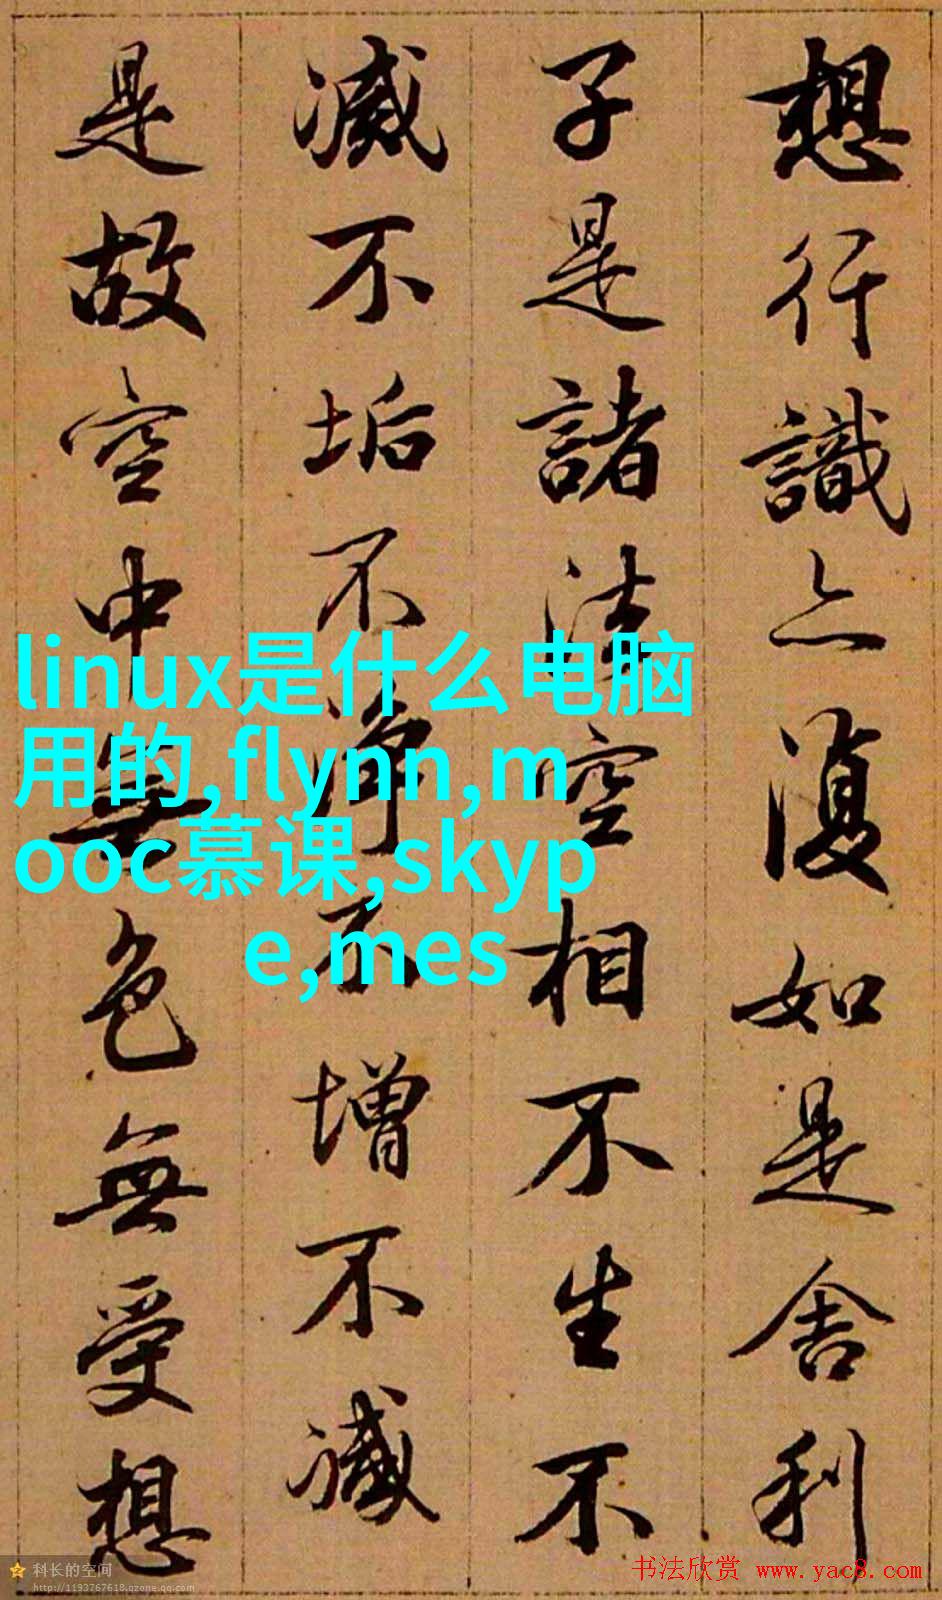 想行識亦復如是舍利
子是諸法空相不生不
滅不垢不淨不增不減
是故空中無色無受想
linux是什么电脑
用的,flynn,m
ooc慕课,skyp
e,mes
科长的空间
http://1193767618.qzone.qq.com
书法欣赏 www.yac8.com